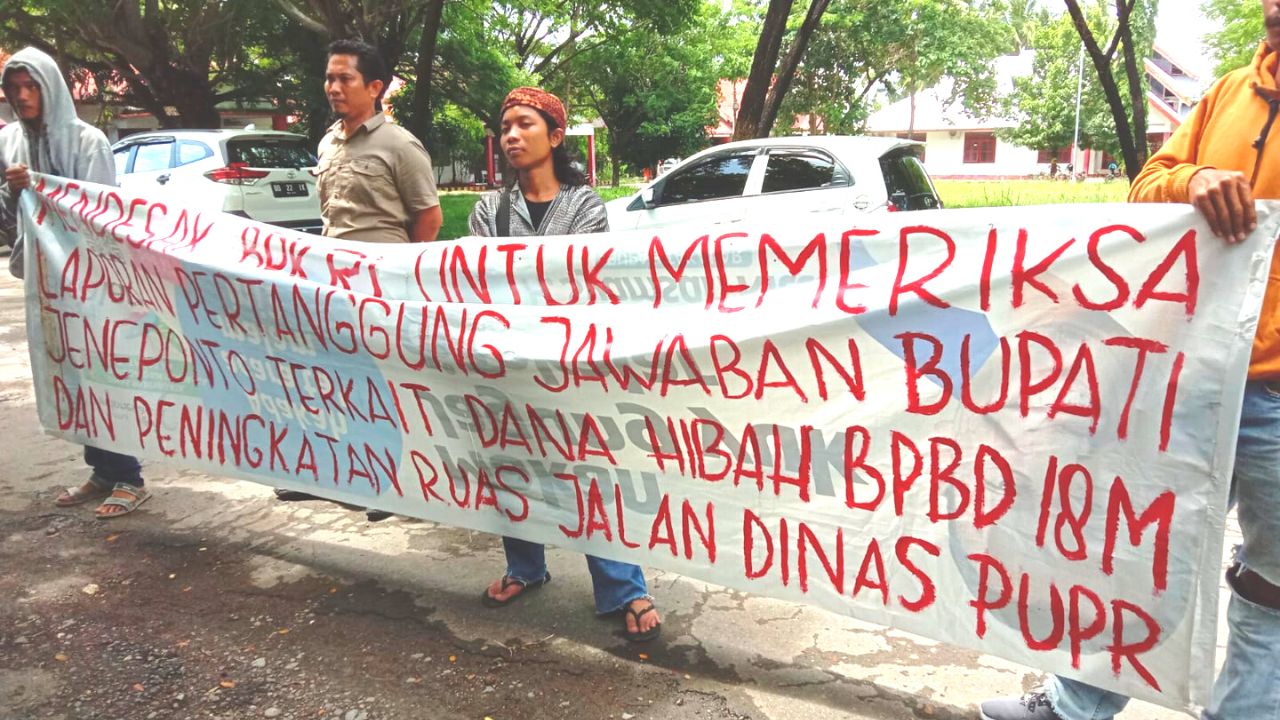 MENDESAK BPK RI UNTUK MEMERIKSA
LAPORAN PERTANGGUNG JAWABAN BUPATI
JENEPONTO TERKAIT DANA HIBAH BPBD 18M
DAN PENINGKATAN RUAS JALAN DINAS PUPR